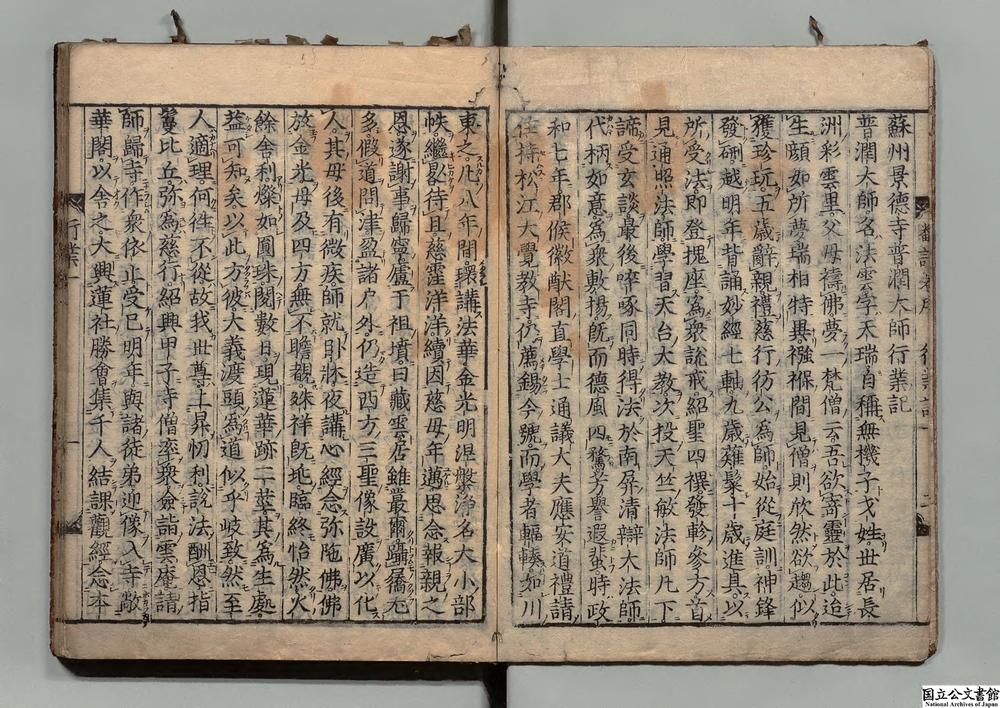 蘇州景德寺普潤大師行業記
普潤大師名法雲字天瑞自稱無機子戈姓世居長
洲彩雲里父母禱佛夢一梵僧云吾欲寄靈於此迨
生頋如所夢瑞相特異襁褓間見僧則欣然欲趨似
獲珍玩五歲辭親禮慈行彷公為師始從庭訓神鋒
發硎越明年昔誦妙經七軸九歲薙髮十歲進具以
所受法即登塊座為衆說戒紹聖四禩發軫參方首
見通照法師學習天台大教次投天竺敏法師凡下
諦受玄談最後啐啄同時得法於南屏清辯大法師
代柄如意為衆敷揚既而德風四騖芳譽遐蜚時政
和七年郡候徽猷閣直學士通議大夫應安道禮請
住持松江大覺教寺仍薦錫今號而學者輻輳如川
東之凡八年間環講法華金光明涅槃淨名大小部
帙繼晷待旦慈霔洋洋續因慈母年邁思念報親之
恩遂謝事歸寧廬于祖墳曰藏雲居雖叢爾躡𫏋尤
多假道問津盈諸户外仍造西方三聖像設廣以化
人其母後有微疾師就卧牀夜講心經念弥陁佛佛
放金光母及四方無不瞻覩殊祥既地臨終怡然火
餘舍利燦如圓珠閱數日現蓮華跡二莖其為生處
益可知矣以此方彼大義渡頭為道似乎岐致然至
人適理何徃不從故我世尊上昇忉利說法酬恩指
鬘比丘弥為慈行紹興甲子寺僧率衆僉詣雲庵請
師歸寺作衆依止受已明年與諸徒弟迎像入寺敞
華閣以舍之大興蓮社勝會集千人結課觀經念本
行業一
国立公文書館
National Archives of Japan